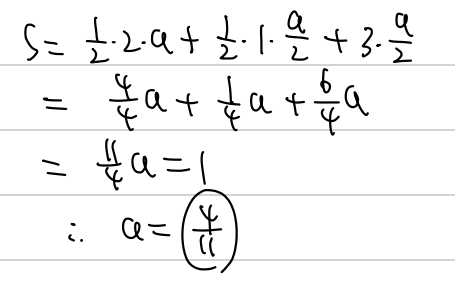 S = \frac{1}{2} · 2 · a + \frac{1}{2} · 1 · \frac{a}{2} + 3 · \frac{a}{2}
= \frac{4}{4}a + \frac{1}{4}a + \frac{6}{4}a
= \frac{11}{4}a = 1
∴ a = \frac{4}{11}